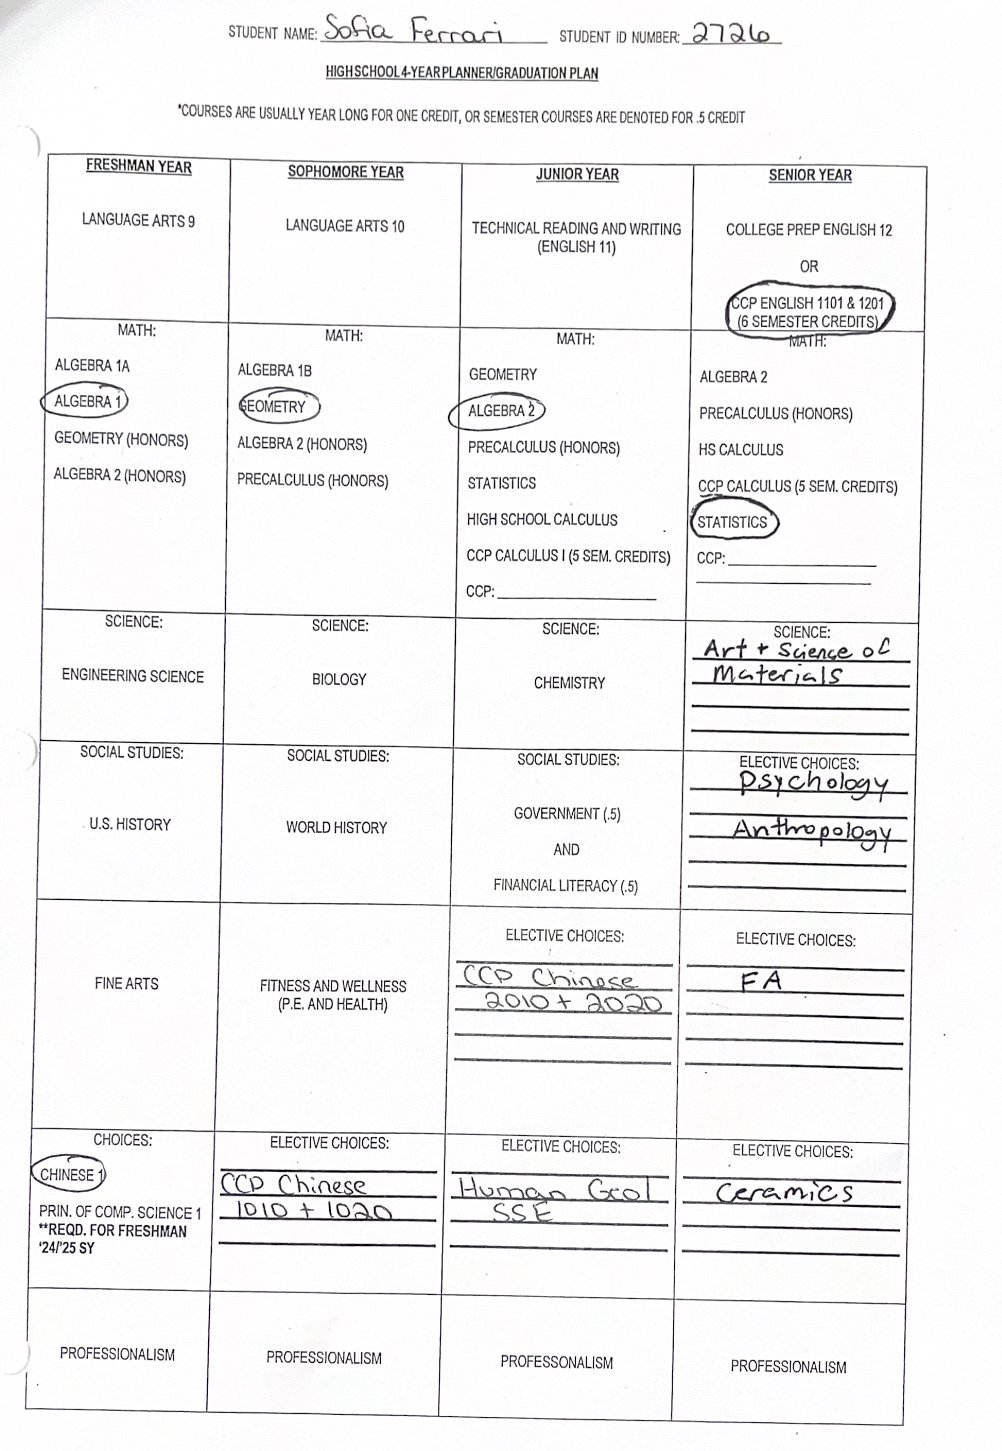 STUDENT NAME: Sofia Ferrari STUDENT ID NUMBER: 2726
HIGH SCHOOL 4-YEAR PLANNER/GRADUATION PLAN
*COURSES ARE USUALLY YEAR LONG FOR ONE CREDIT, OR SEMESTER COURSES ARE DENOTED FOR .5 CREDIT
FRESHMAN YEAR
LANGUAGE ARTS 9
SOPHOMORE YEAR
LANGUAGE ARTS 10
JUNIOR YEAR
TECHNICAL READING AND WRITING
(ENGLISH 11)
SENIOR YEAR
COLLEGE PREP ENGLISH 12
OR
CCP ENGLISH 1101 & 1201
(6 SEMESTER CREDITS)
MATH:
ALGEBRA 1A
ALGEBRA 1
GEOMETRY (HONORS)
ALGEBRA 2 (HONORS)
MATH:
ALGEBRA 1B
GEOMETRY
ALGEBRA 2 (HONORS)
PRECALCULUS (HONORS)
MATH:
GEOMETRY
ALGEBRA 2
PRECALCULUS (HONORS)
STATISTICS
HIGH SCHOOL CALCULUS
CCP CALCULUS I (5 SEM. CREDITS)
CCP:
MATH:
ALGEBRA 2
PRECALCULUS (HONORS)
HS CALCULUS
CCP CALCULUS (5 SEM. CREDITS)
STATISTICS
CCP:
SCIENCE:
ENGINEERING SCIENCE
SCIENCE:
BIOLOGY
SCIENCE:
CHEMISTRY
SCIENCE:
Art + Science of
Materials
SOCIAL STUDIES:
U.S. HISTORY
SOCIAL STUDIES:
WORLD HISTORY
SOCIAL STUDIES:
GOVERNMENT (.5)
AND
FINANCIAL LITERACY (.5)
ELECTIVE CHOICES:
Psychology
Anthropology
FINE ARTS
FITNESS AND WELLNESS
(P.E. AND HEALTH)
ELECTIVE CHOICES:
CCP Chinese
2010 + 2020
ELECTIVE CHOICES:
FA
CHOICES:
CHINESE 1
PRIN. OF COMP. SCIENCE 1
**REQD. FOR FRESHMAN
'24/'25 SY
ELECTIVE CHOICES:
CCP Chinese
1010 + 1020
ELECTIVE CHOICES:
Human Geol
SSE
ELECTIVE CHOICES:
Ceramics
PROFESSIONALISM
PROFESSIONALISM
PROFESSONALISM
PROFESSIONALISM